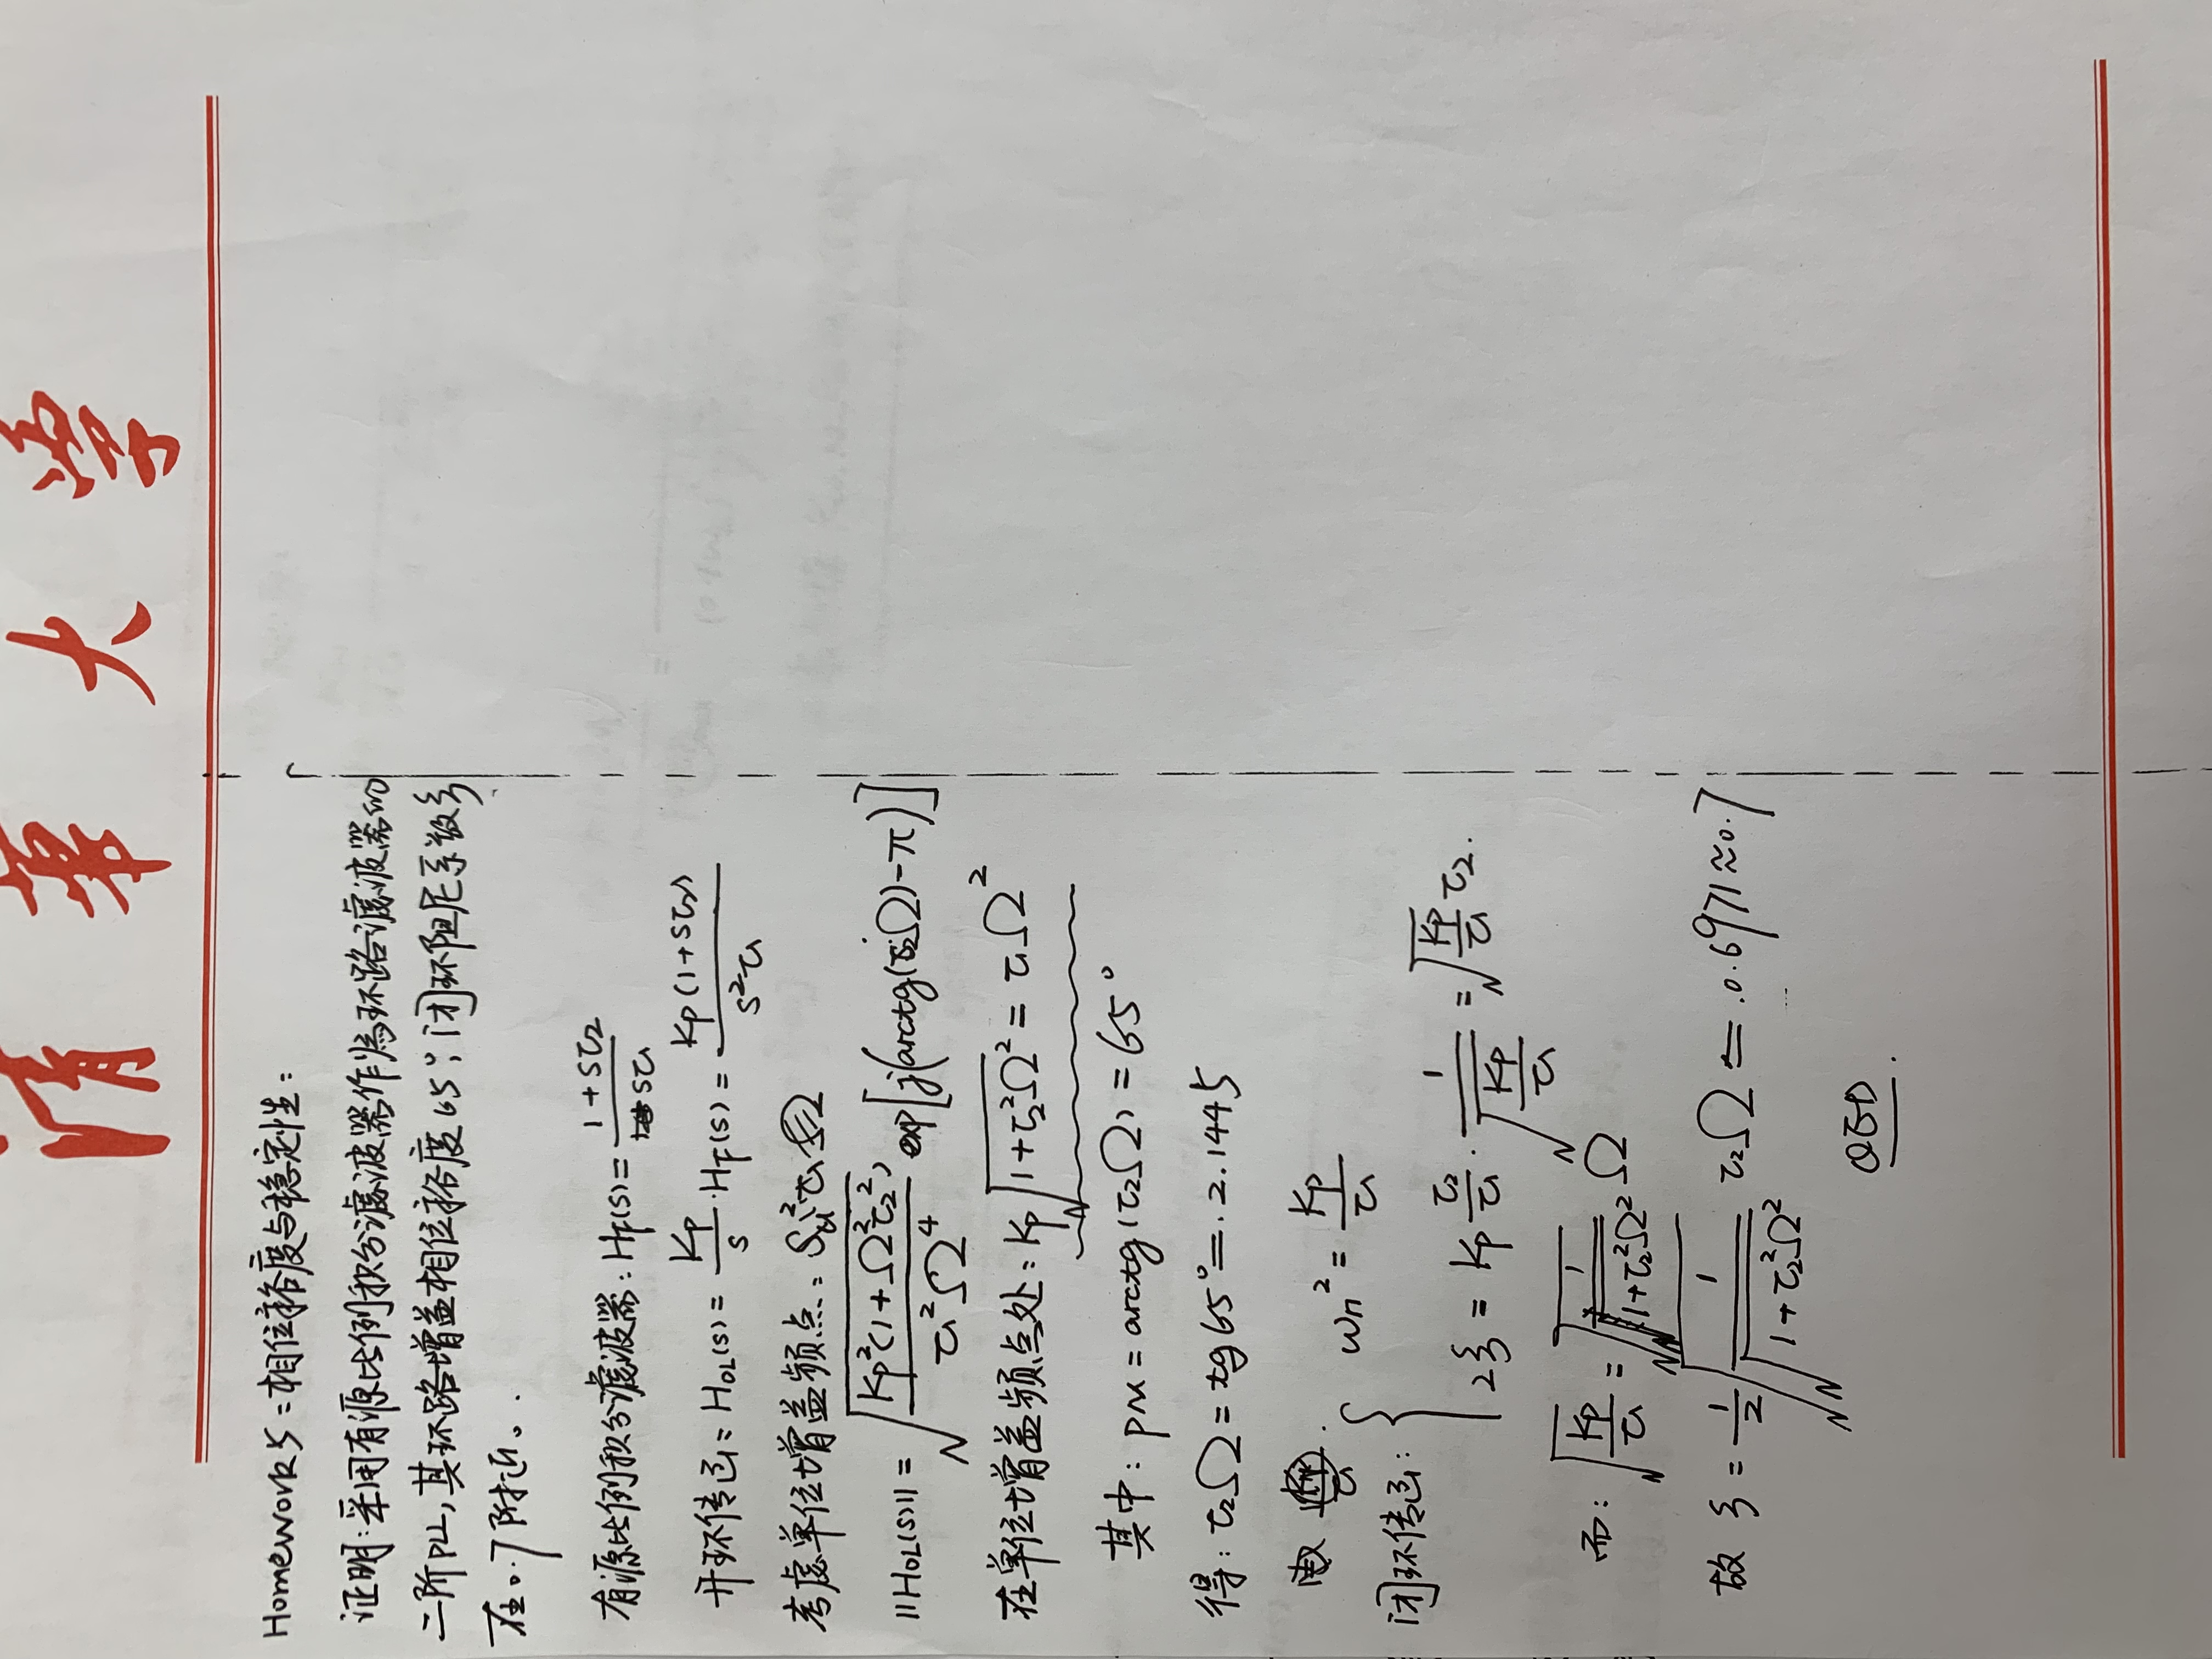 清華大学
Homework5:相位裕度与稳定性:
证明:采用有源比例积分滤波器作为环路滤波器的
二阶PLL,其环路增益相位裕度65°,闭环阻尼系数ξ
在0.7附近。
有源比例积分滤波器:H_F(s)=\frac{1+sτ_2}{sτ_1}
开环传函:H_{OL}(s)=\frac{K_P}{s}·H_F(s)=\frac{K_P(1+sτ_2)}{s^2τ_1}
考虑单位增益频点:
||H_{OL}(s)||=\sqrt{\frac{K_P^2(1+Ω^2τ_2^2)}{τ_1^2Ω^4}} exp[j(arctg(τ_2Ω)-π)]
在单位增益频点处:K_P\sqrt{1+τ_2^2Ω^2}=τ_1Ω^2
其中:PM=arctg(τ_2Ω)=65°
得:τ_2Ω=tg65°=2.1445
闭环传函:{ω_n^2=\frac{K_P}{τ_1}
2ξ=K_P\frac{τ_2}{τ_1}·\frac{1}{\sqrt{\frac{K_P}{τ_1}}}=\sqrt{\frac{K_P}{τ_1}}τ_2.
而:\sqrt{\frac{K_P}{τ_1}}=\sqrt{\frac{1}{\sqrt{1+τ_2^2Ω^2}}}Ω
故ξ=\frac{1}{2}\sqrt{\frac{1}{\sqrt{1+τ_2^2Ω^2}}}τ_2Ω=0.6971≈0.7
QED.